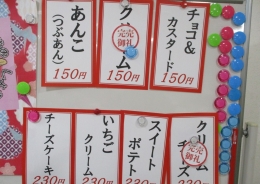 チョコ&
カスタード
150円
ク
ム
完売
御礼
150円
あんこ
(つぶあん)
150円
クリーム
チーズ
完売
御礼
スイート
ポテト
いちご
クリーム
230円
チーズケーキ
230円